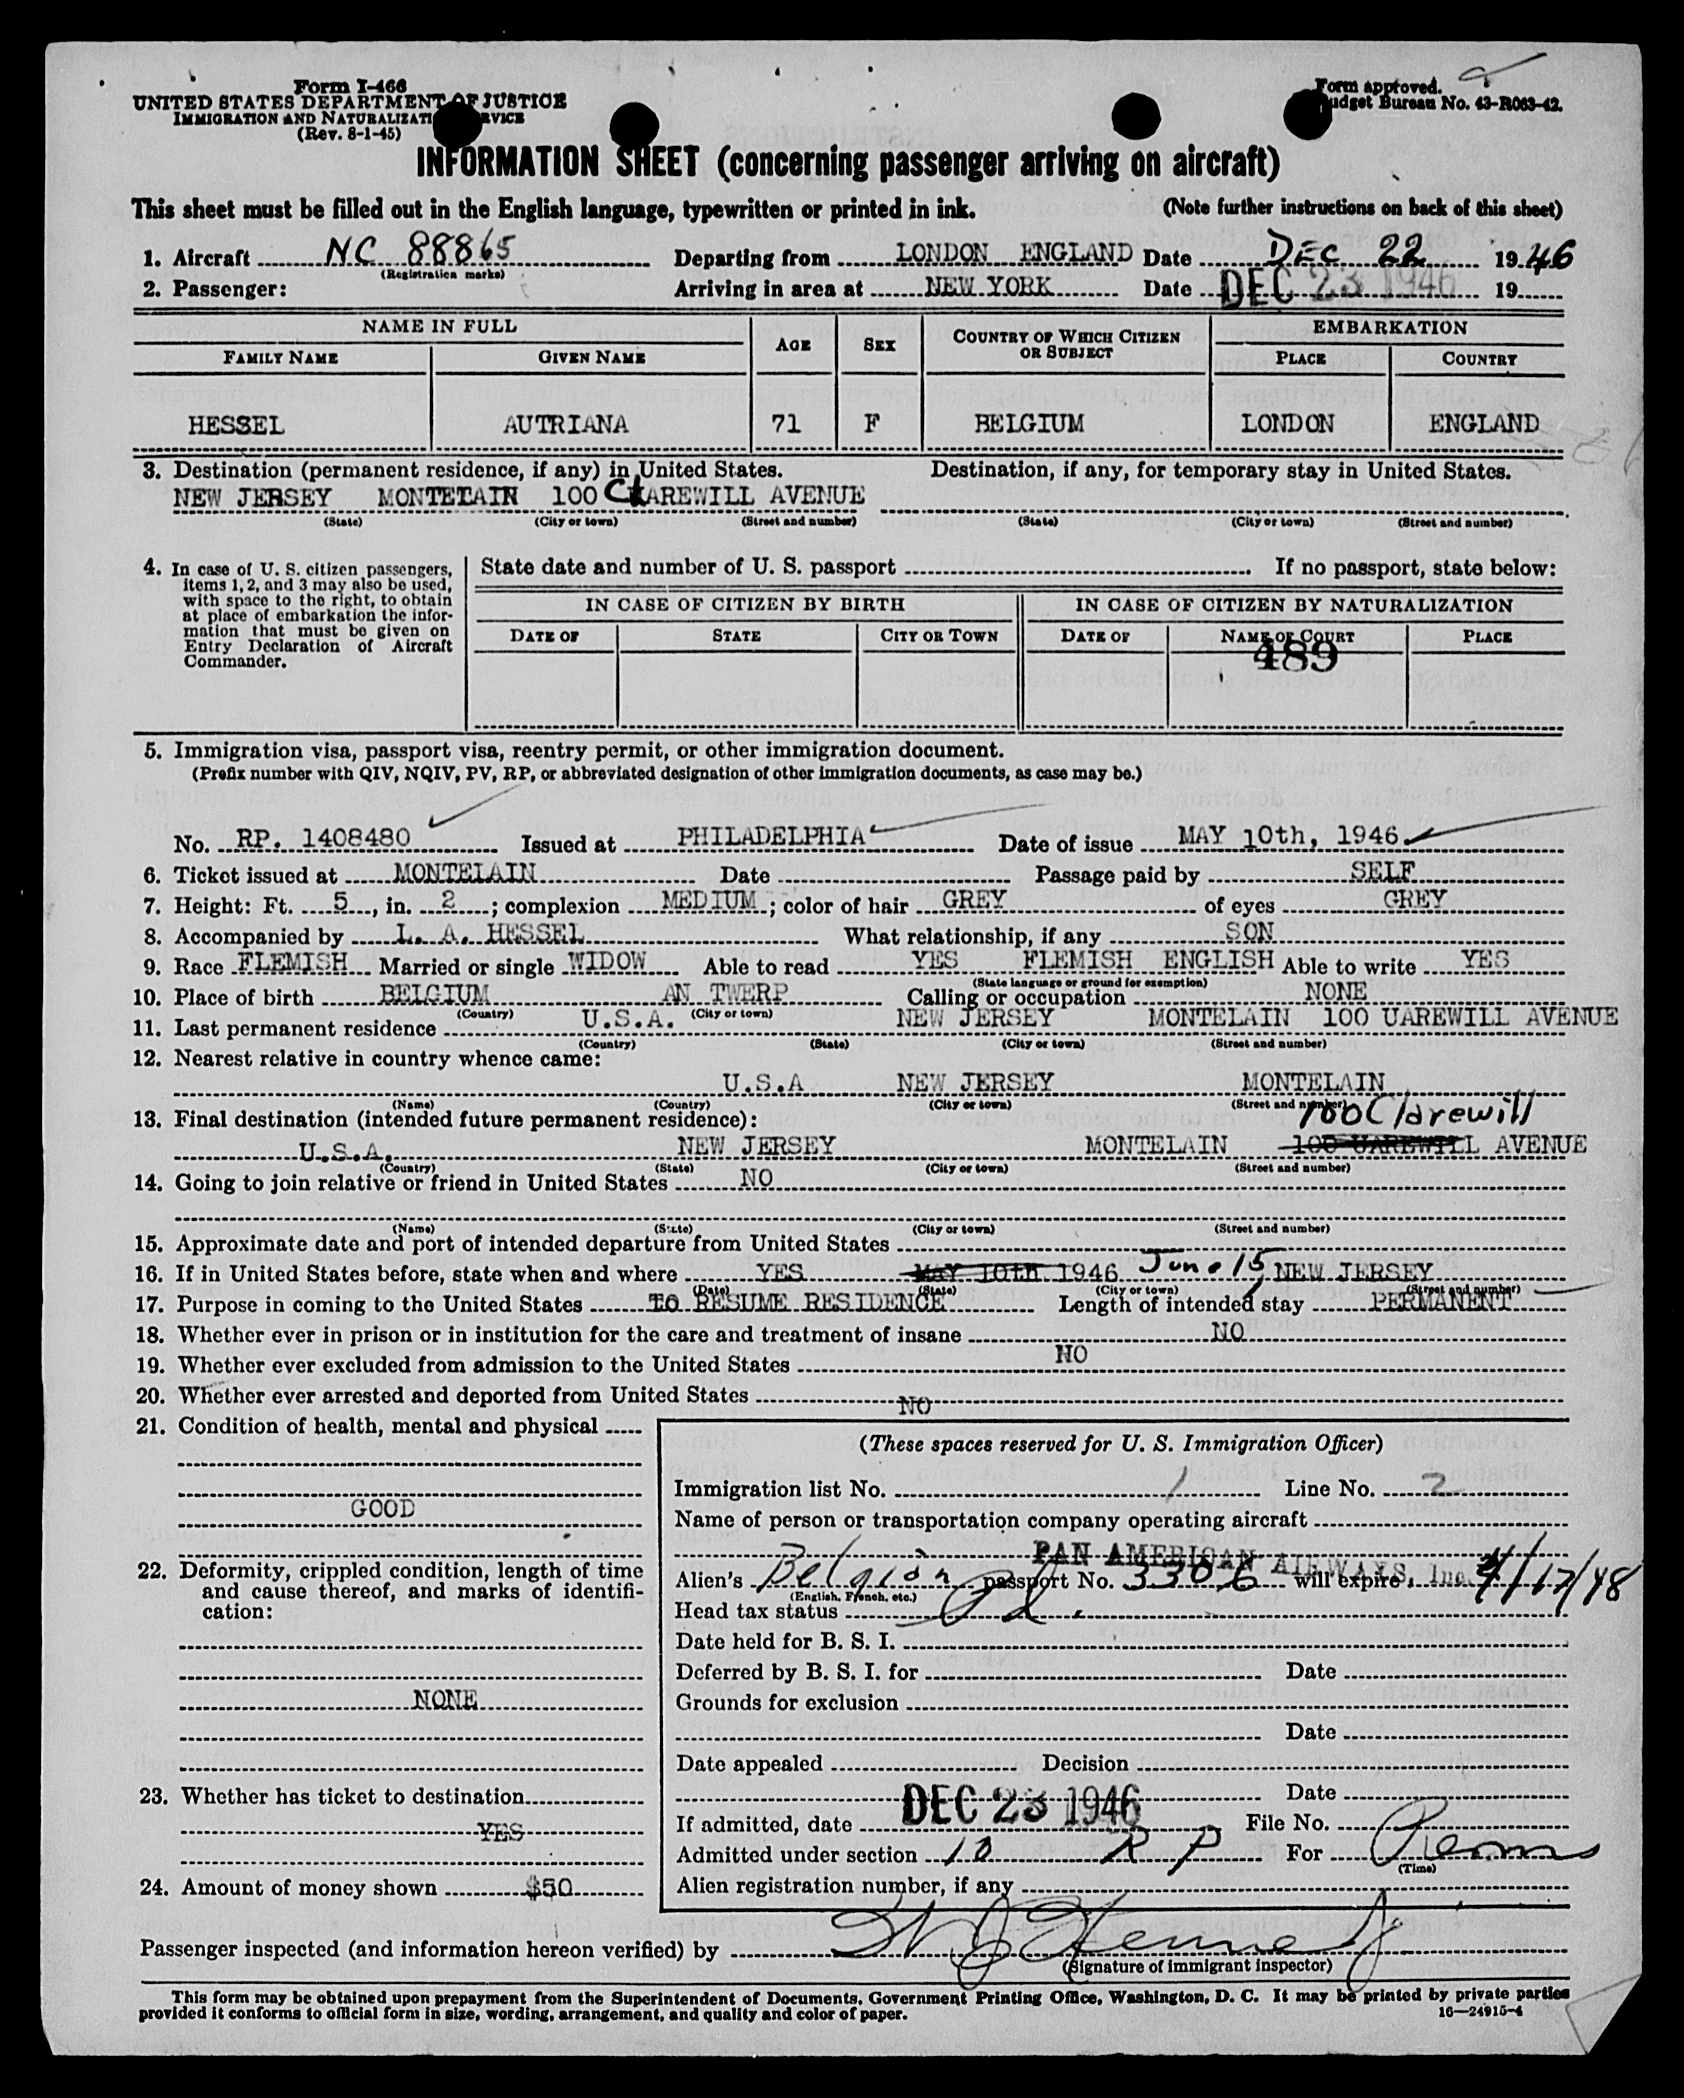 Form I-466
UNITED STATES DEPARTMENT OF JUSTICE
IMMIGRATION AND NATURALIZATION SERVICE
(Rev. 8-1-45)
Form approved.
Budget Bureau No. 43-R063-42.
INFORMATION SHEET (concerning passenger arriving on aircraft)
This sheet must be filled out in the English language, typewritten or printed in ink. (Note further instructions on back of this sheet)
1. Aircraft NC 88865 Departing from LONDON ENGLAND Date DEC 22 1946
(Registration marks)
2. Passenger: Arriving in area at NEW YORK Date DEC 23 1946 19
NAME IN FULL AGE SEX COUNTRY OF WHICH CITIZEN OR SUBJECT EMBARKATION
FAMILY NAME GIVEN NAME PLACE COUNTRY
HESSEL AUTRIANA 71 F BELGIUM LONDON ENGLAND
3. Destination (permanent residence, if any) in United States. Destination, if any, for temporary stay in United States.
NEW JERSEY MONTETAIN 100 CLAREWILL AVENUE
(State) (City or town) (Street and number) (State) (City or town) (Street and number)
4. In case of U. S. citizen passengers, items 1, 2, and 3 may also be used, with space to the right, to obtain at place of embarkation the information that must be given on Entry Declaration of Aircraft Commander.
State date and number of U. S. passport If no passport, state below:
IN CASE OF CITIZEN BY BIRTH IN CASE OF CITIZEN BY NATURALIZATION
DATE OF STATE CITY OR TOWN DATE OF NAME OF COURT PLACE
489
5. Immigration visa, passport visa, reentry permit, or other immigration document.
(Prefix number with QIV, NQIV, PV, RP, or abbreviated designation of other immigration documents, as case may be.)
No. RP. 1408480 Issued at PHILADELPHIA Date of issue MAY 10th, 1946
6. Ticket issued at MONTELAIN Date Passage paid by SELF
7. Height: Ft. 5, in. 2; complexion MEDIUM; color of hair GREY of eyes GREY
8. Accompanied by L. A. HESSEL What relationship, if any SON
9. Race FLEMISH Married or single WIDOW Able to read YES FLEMISH ENGLISH Able to write YES
(State language or ground for exemption)
10. Place of birth BELGIUM AN TWERP Calling or occupation NONE
(Country) (City or town)
11. Last permanent residence U.S.A. NEW JERSEY MONTELAIN 100 UAREWILL AVENUE
(Country) (State) (City or town) (Street and number)
12. Nearest relative in country whence came:
U.S.A NEW JERSEY MONTELAIN
(Name) (Country) (City or town) (Street and number)
13. Final destination (intended future permanent residence): 100 Clarewill
U.S.A. NEW JERSEY MONTELAIN 100 UAREWILL AVENUE
(Country) (State) (City or town) (Street and number)
14. Going to join relative or friend in United States NO
(Name) (State) (City or town) (Street and number)
15. Approximate date and port of intended departure from United States
16. If in United States before, state when and where YES MAY 10th 1946 June 15, NEW JERSEY
(Date) (State) (City or town) (Street and number)
17. Purpose in coming to the United States TO RESUME RESIDENCE Length of intended stay PERMANENT
18. Whether ever in prison or in institution for the care and treatment of insane NO
19. Whether ever excluded from admission to the United States NO
20. Whether ever arrested and deported from United States NO
21. Condition of health, mental and physical
GOOD
22. Deformity, crippled condition, length of time and cause thereof, and marks of identification:
NONE
23. Whether has ticket to destination
YES
24. Amount of money shown $50
(These spaces reserved for U. S. Immigration Officer)
Immigration list No. 1 Line No. 2
Name of person or transportation company operating aircraft
PAN AMERICAN AIRWAYS, Inc.
Alien's Belgian passport No. 3306 will expire 4/17/48
(English, French, etc.)
Head tax status Pd.
Date held for B. S. I.
Deferred by B. S. I. for Date
Grounds for exclusion
Date
Date appealed Decision
Date
If admitted, date DEC 23 1946 File No.
Admitted under section 10 RP For Perm
(Time)
Alien registration number, if any
Passenger inspected (and information hereon verified) by
(Signature of immigrant inspector)
This form may be obtained upon prepayment from the Superintendent of Documents, Government Printing Office, Washington, D. C. It may be printed by private parties
provided it conforms to official form in size, wording, arrangement, and quality and color of paper. 16—24915-4